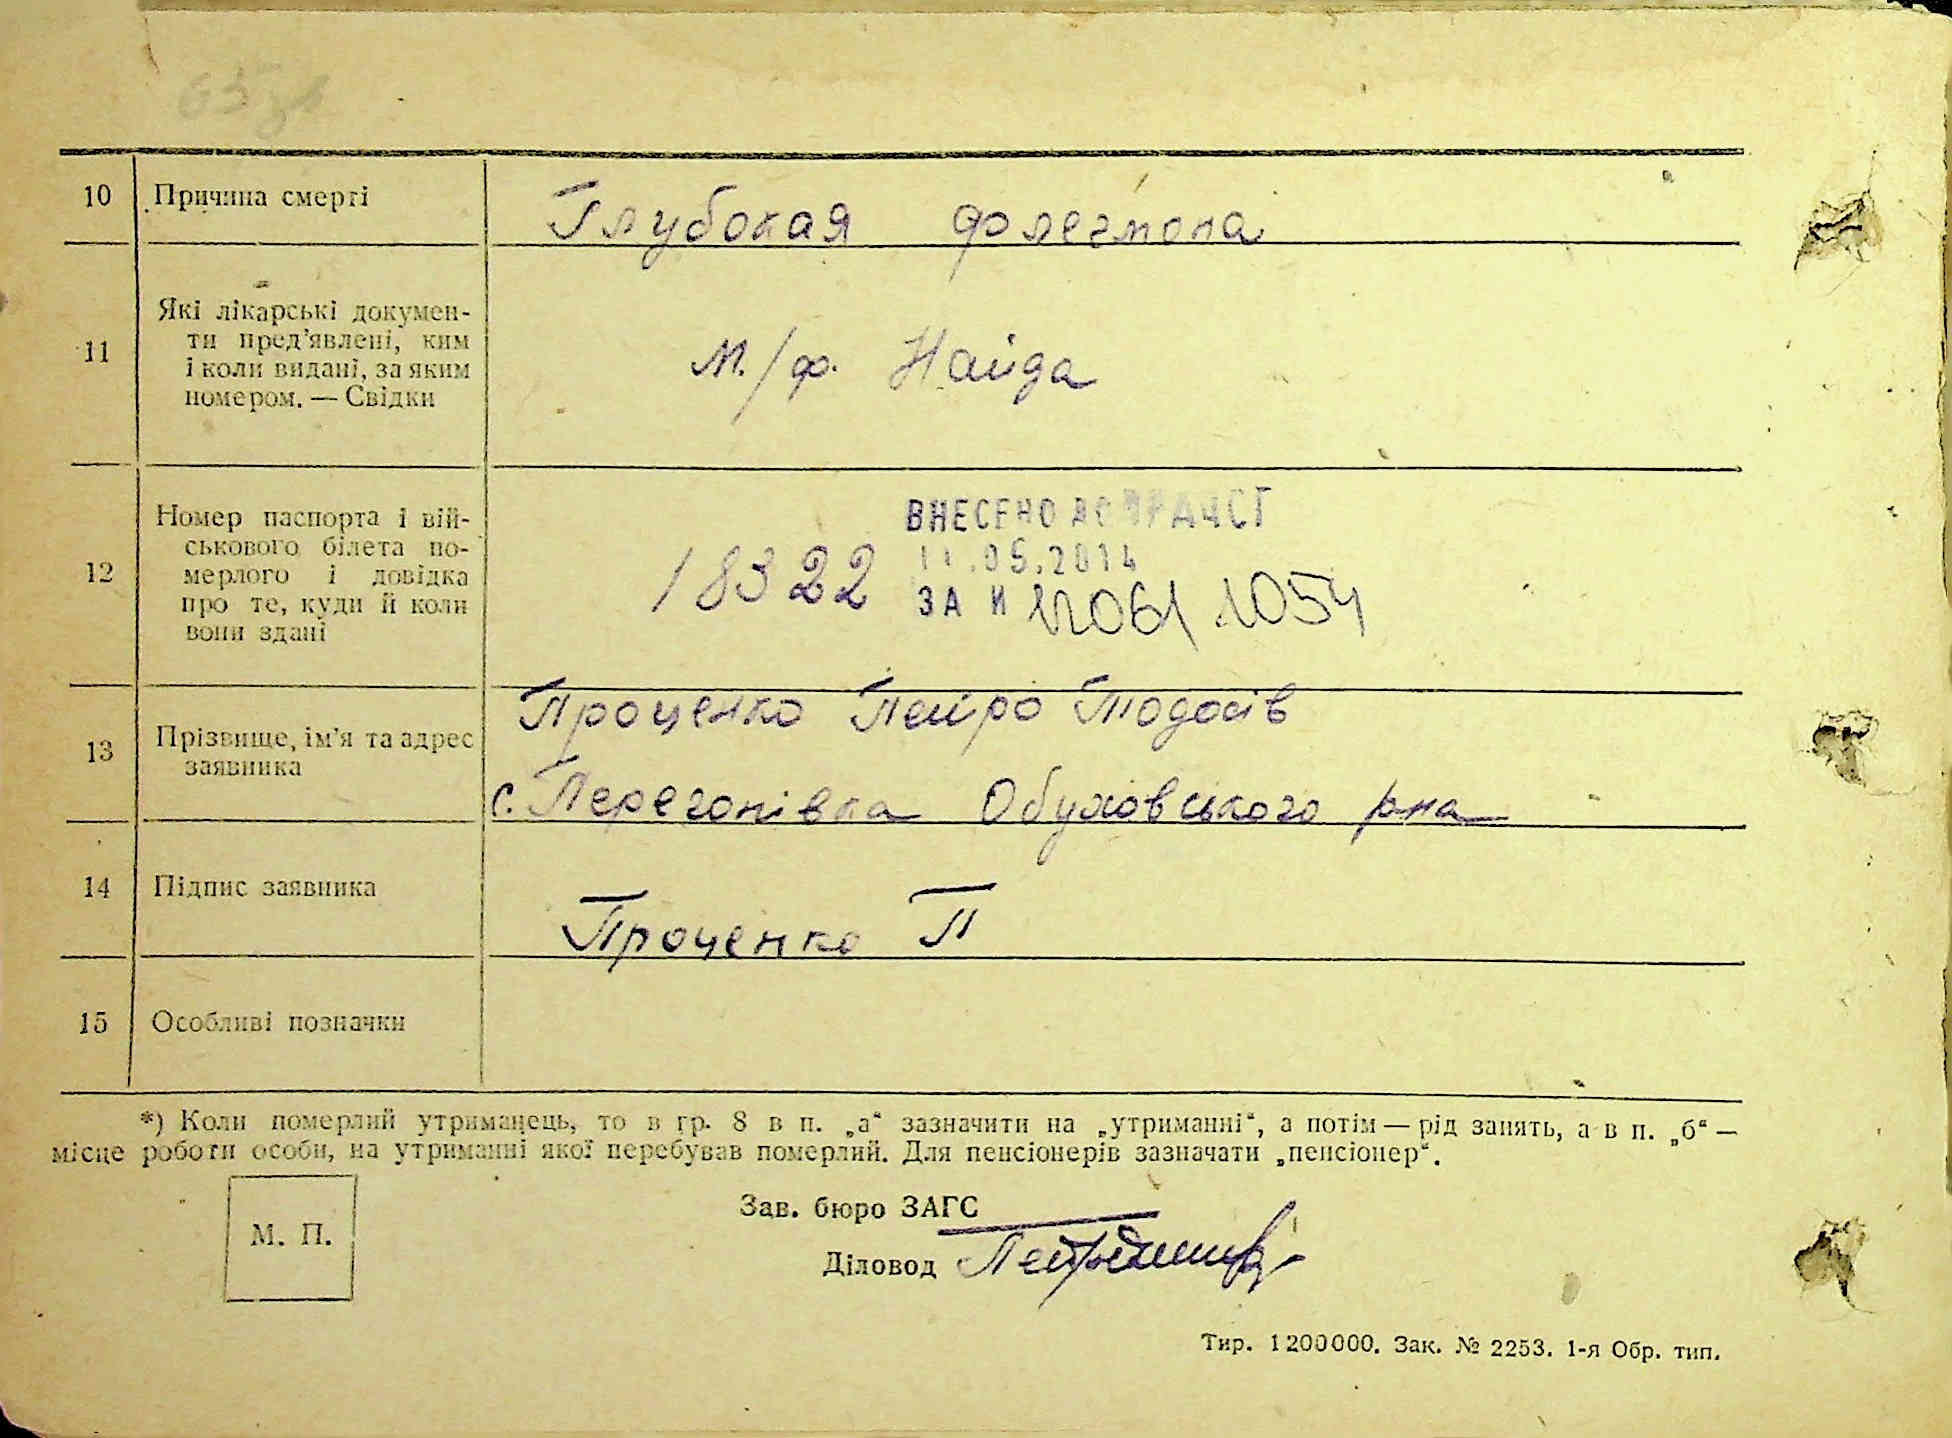 10 Причина смерті Глубокая фолегмона
11 Які лікарські докумен-
ти пред'явлені, ким
і коли видані, за яким
номером. — Свідки
М./ф. Найда
12 Номер паспорта і вій-
ськового білета по-
мерлого і довідка
про те, куди й коли
вони здані
18322
ВНЕСЕНО ДО ДРАЦСГ
11.05.2014
ЗА И 1054
13 Прізвище, ім'я та адрес
заявника
Проценко Петро Тодосів
с. Перегонівка Обуховського рна
14 Підпис заявника Проценко П
15 Особливі позначки
*) Коли померлий утриманець, то в гр. 8 в п. „а“ зазначити на „утриманні“, а потім — рід занять, а в п. „б“ —
місце роботи особи, на утриманні якої перебував померлий. Для пенсіонерів зазначати „пенсіонер“.
М. П.
Зав. бюро ЗАГС
Діловод
Тир. 1200000. Зак. № 2253. 1-я Обр. тип.